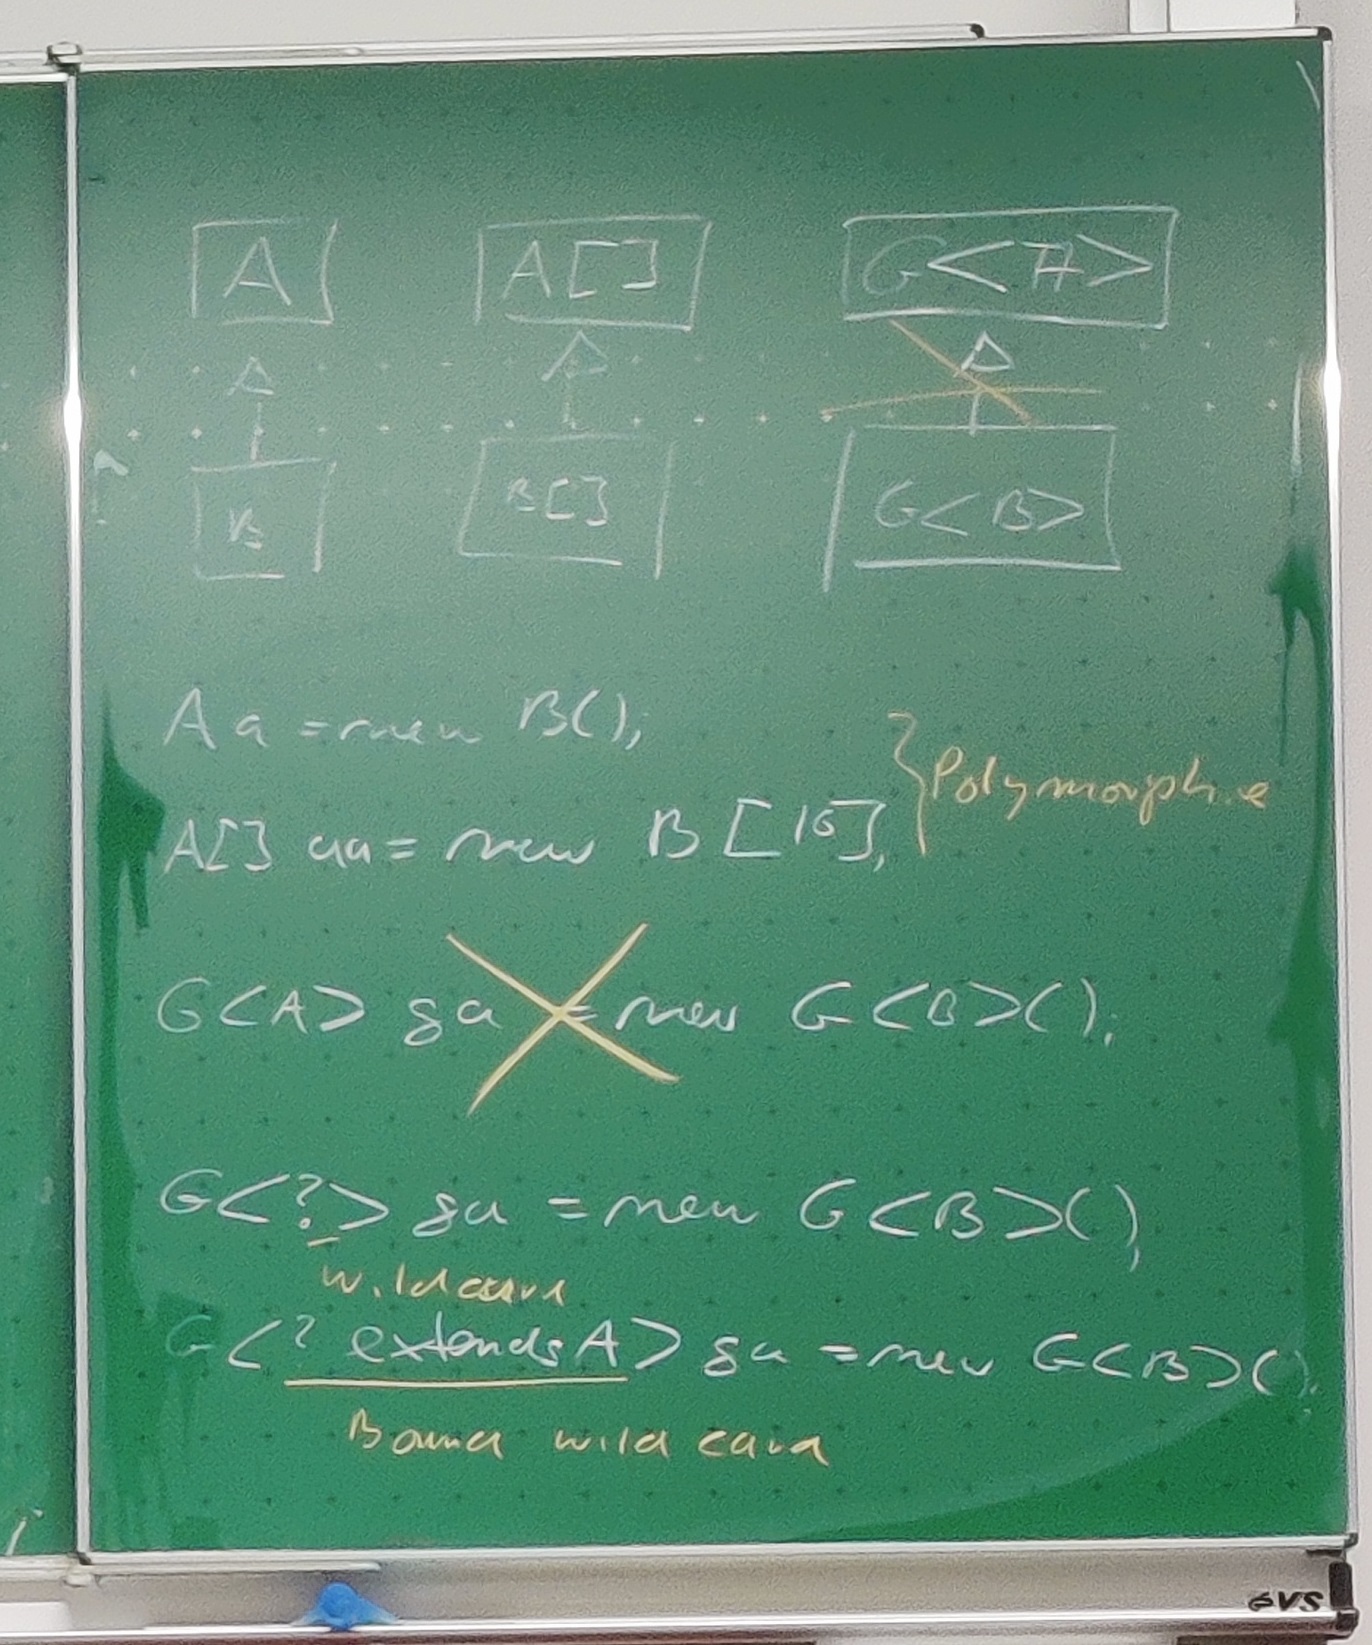 A A[] G<A>
B B[] G<B>
A a = new B();
A[] aa = new B[15];
} Polymorphie
G<A> ga = new G<B>();
G<?> ga = new G<B>();
wildcard
G<? extends A> ga = new G<B>();
Bound wild card
GVS